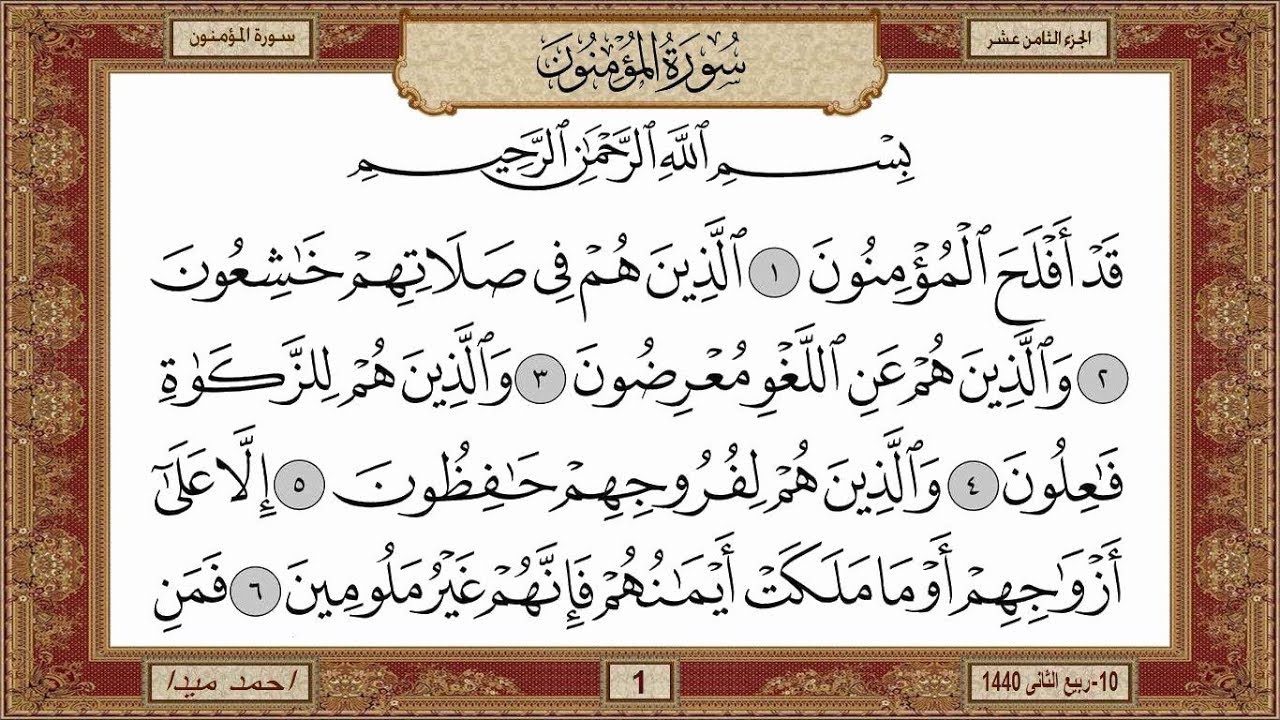 الجزء الثامن عشر
سُورَةُ المُؤْمِنُونَ
سورة المؤمنون
بِسْمِ ٱللَّهِ ٱلرَّحْمَٰنِ ٱلرَّحِيمِ
قَدْ أَفْلَحَ ٱلْمُؤْمِنُونَ ١ ٱلَّذِينَ هُمْ فِى صَلَاتِهِمْ خَٰشِعُونَ
٢ وَٱلَّذِينَ هُمْ عَنِ ٱللَّغْوِ مُعْرِضُونَ ٣ وَٱلَّذِينَ هُمْ لِلزَّكَوٰةِ
فَٰعِلُونَ ٤ وَٱلَّذِينَ هُمْ لِفُرُوجِهِمْ حَٰفِظُونَ ٥ إِلَّا عَلَىٰٓ
أَزْوَٰجِهِمْ أَوْ مَا مَلَكَتْ أَيْمَٰنُهُمْ فَإِنَّهُمْ غَيْرُ مَلُومِينَ ٦ فَمَنِ
10-ربيع الثانى 1440
1
احمد ميدا